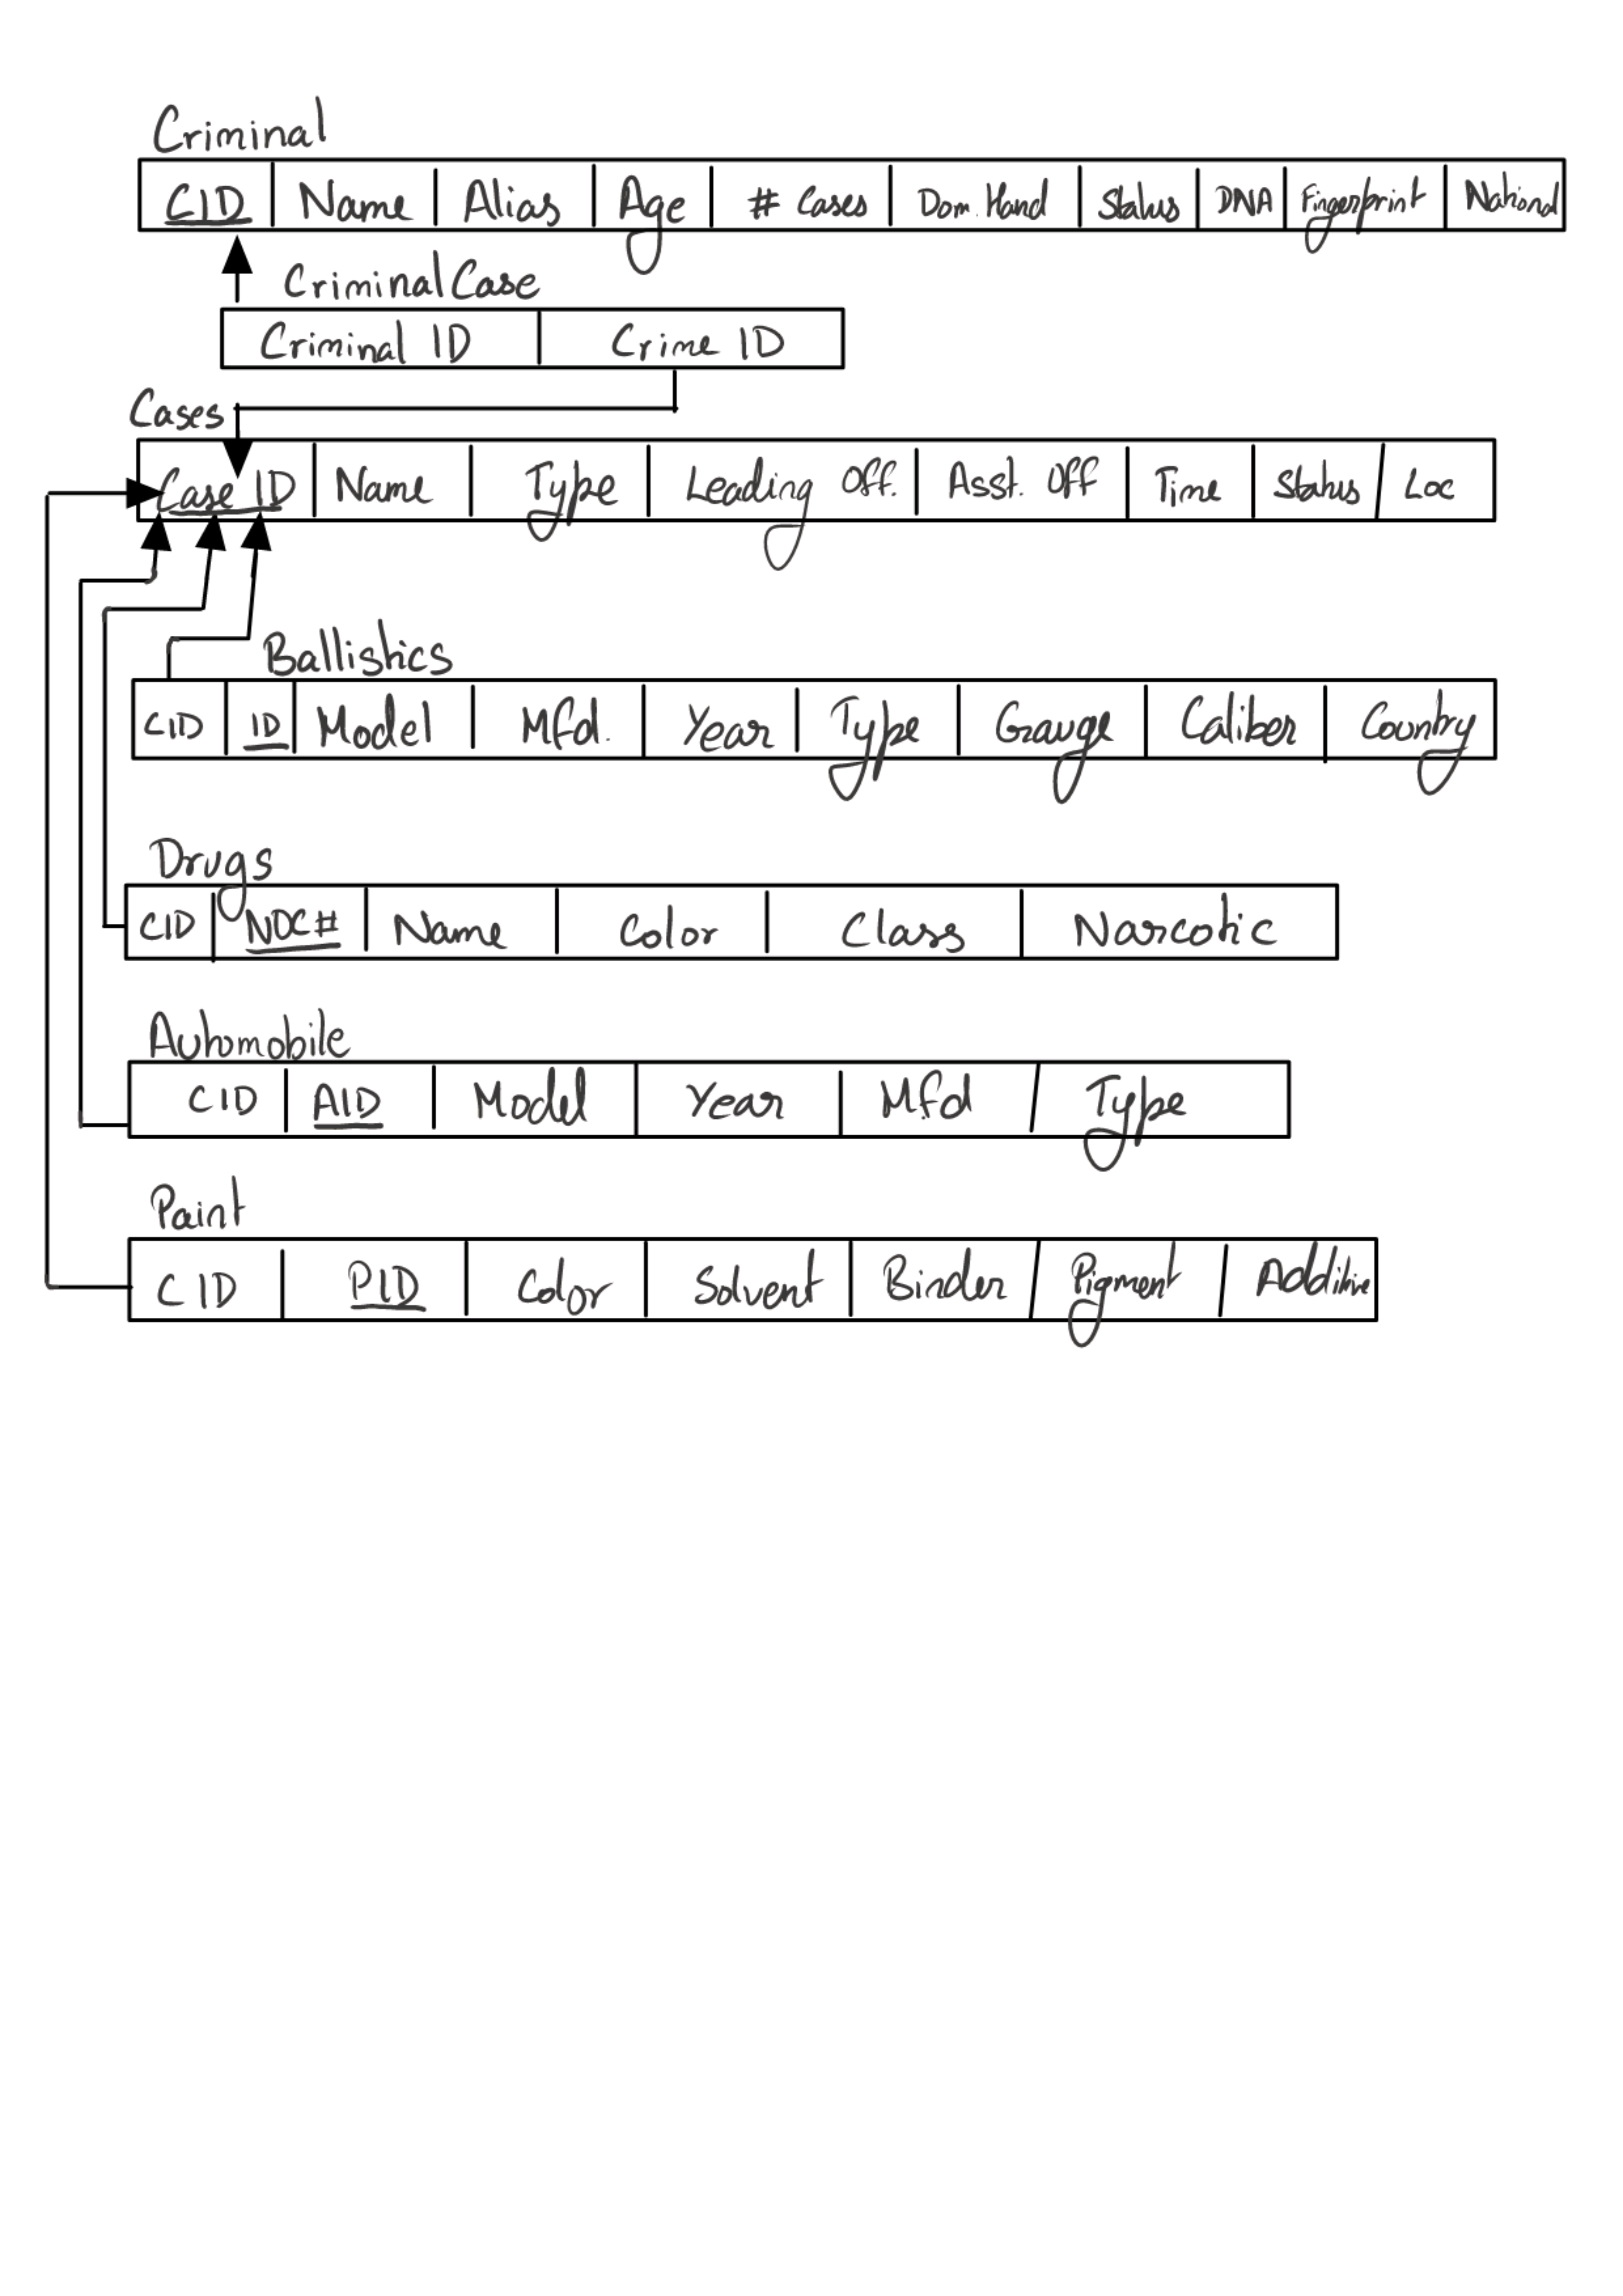 Criminal
CID Name Alias Age # Cases Dom. Hand Status DNA Fingerprint National
CriminalCase
Criminal ID Crime ID
Cases
Case ID Name Type Leading Off. Asst. Off Time Status Loc
Ballistics
CID ID Model Mfd. Year Type Gauge Caliber Country
Drugs
CID NDC# Name Color Class Narcotic
Automobile
CID AID Model Year Mfd Type
Paint
CID PID Color Solvent Binder Pigment Additive